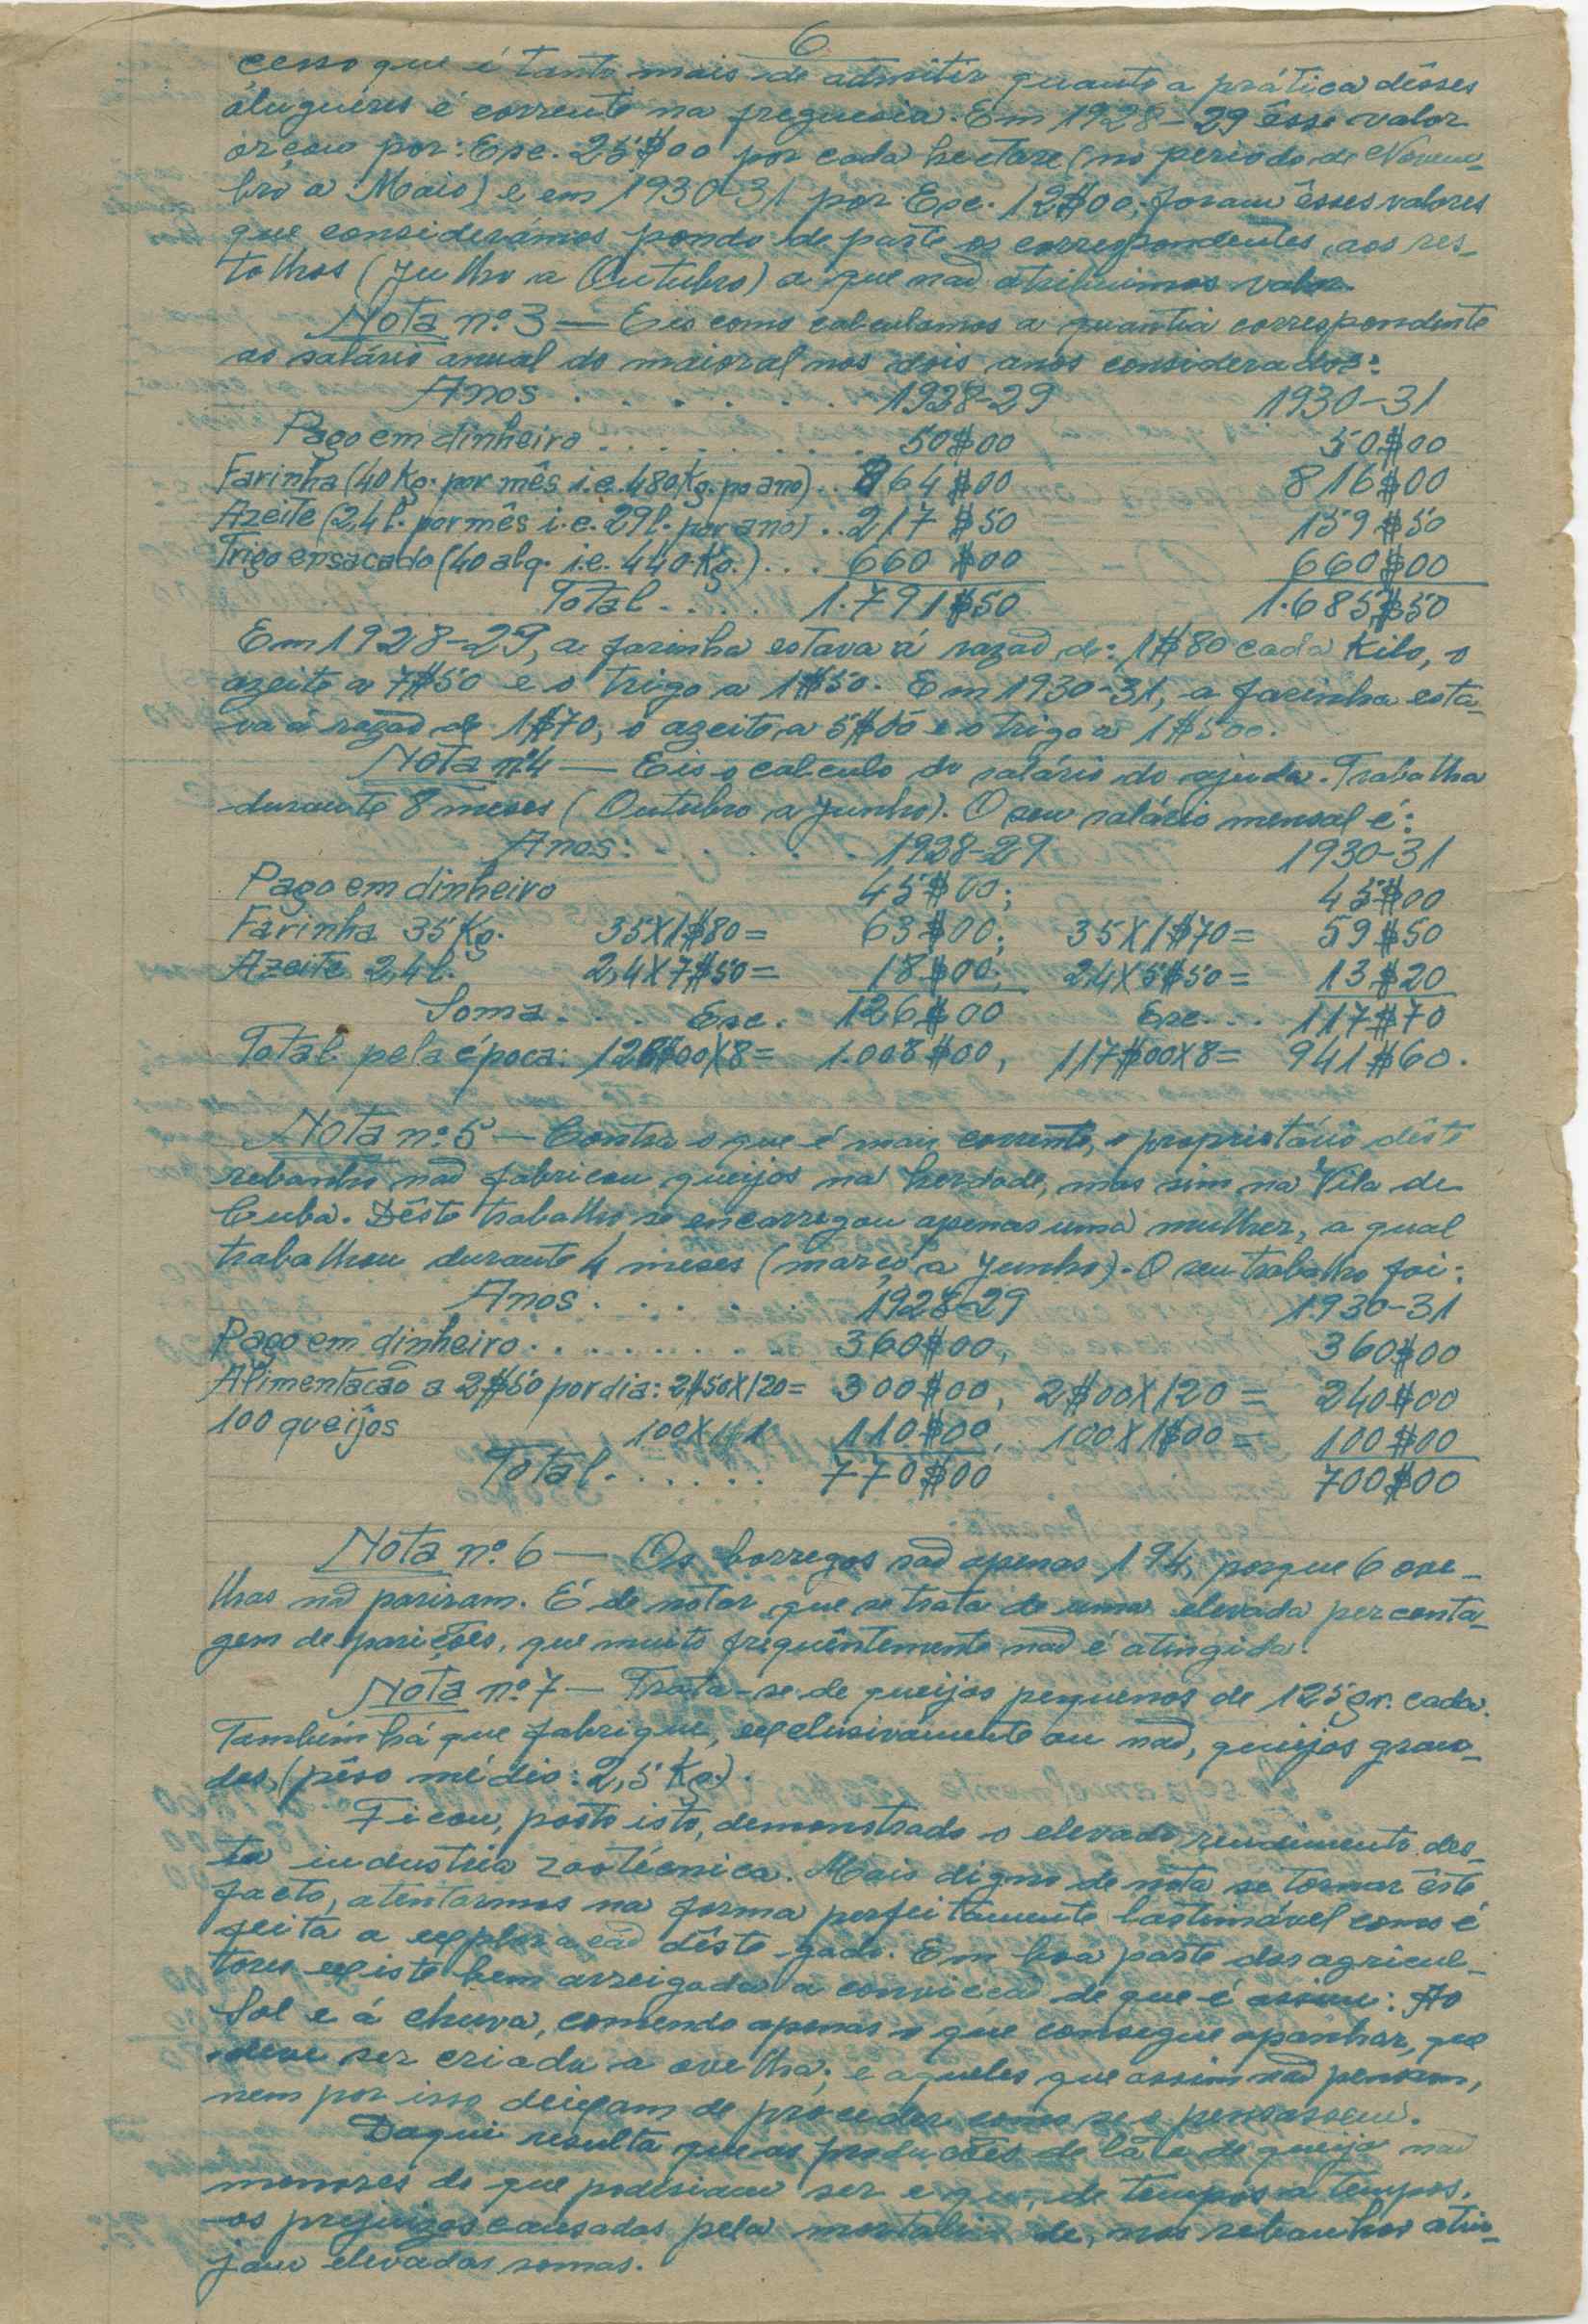 6
cesso que é tanto mais de admitir quanto a prática dêsses
alugueres é corrente na freguesia. Em 1928-29 êsse valor
orçou por: Esc. 25$00 por cada hectare (no periodo de Novem-
bro a Maio) e em 1930-31 por Esc. 12$00; foram êsses valores
que considerámos pondo de parte os correspondentes aos res-
tolhos (Julho a Outubro) a que não atribuimos valor.
Nota nº 3 — Eis como calculamos a quantia correspondente
ao salário anual do maioral nos dois anos considerados:
Anos . . . . . . . 1928-29 1930-31
Pago em dinheiro . . . . . . . 50$00 50$00
Farinha (40 Kg. por mês i.e. 480 Kg. po ano) . . 864$00 816$00
Azeite (2,4 l. por mês i.e. 29 l. por ano) . . 217$50 159$50
Trigo ensacado (40 alq. i.e. 440 Kg.) . . . 660$00 660$00
Total . . . . 1.791$50 1.685$50
Em 1928-29, a farinha estava á razão de: 1$80 cada Kilo, o
azeite a 7$50 e o trigo a 1$50. Em 1930-31, a farinha esta-
va á razão de 1$70, o azeite a e o trigo a 1$500.
Nota nº4 — Eis o calculo do salário do ajuda. Trabalha
durante 8 meses (Outubro a Junho). O seu salário mensal é:
Anos: . . . . . 1928-29 1930-31
Pago em dinheiro 45$00; 45$00
Farinha 35 Kg. 35X1$80= 63$00; 35X1$70= 59$50
Azeite 2,4 l. 2,4X7$50= 18$00; 2,4X5$50= 13$20
Soma . . . . Esc. 126$00 Esc. . . 117$70
Total pela época: 126$00X8= 1.008$00, 117$00X8= 941$60.
Nota nº 5 — Contra o que é mais corrente, o proprietário dêste
rebanho não fabricou queijos na herdade, mas sim na Vila de
Cuba. Dêste trabalho se encarregou apenas uma mulher, a qual
trabalhou durante 4 meses (março a Junho). O seu trabalho foi:
Anos . . . . . . 1928-29 1930-31
Pago em dinheiro . . . . . . . . . 360$00, 360$00
Alimentação a 2$50 por dia: 2$50X120= 300$00, 2$00X120= 240$00
100 queijos 100X1$1 110$00, 100X1$00= 100$00
Total . . . . . . 770$00 700$00
Nota nº 6 — Os borregos são apenas 194, porque 6 ove-
lhas não pariram. É de notar que se trata de uma elevada percenta-
gem de parições, que muito freqüentemente não é atingida.
Nota nº 7 — Trata-se de queijos pequenos de 125 gr. cada.
Tambem há que fabrique, exclusivamente ou não, queijos gran-
des, (pêso médio: 2,5 Kg.).
Ficou, posto isto, demonstrado o elevado rendimento des-
ta industria zootécnica. Mais digno de nota se tornar êste
facto, atentarmos na forma perfeitamente lastimável como é
feita a exploração dêste gado. Em boa parte dos agricul-
tores existe bem arreigada a convicção de que é assim: Ao
Sol e á chuva, comendo apenas o que consegue apanhar, que
deve ser criada a ovelha; e aqueles que assim não pensam,
nem por isso deixam de proceder como se o pensassem.
Daqui resulta que as produções de lã e de queijo não
menores do que poderiam ser e que, de tempos a tempos,
os prejuizos causados pela mortalidade, nos rebanhos atin-
jam elevadas somas.